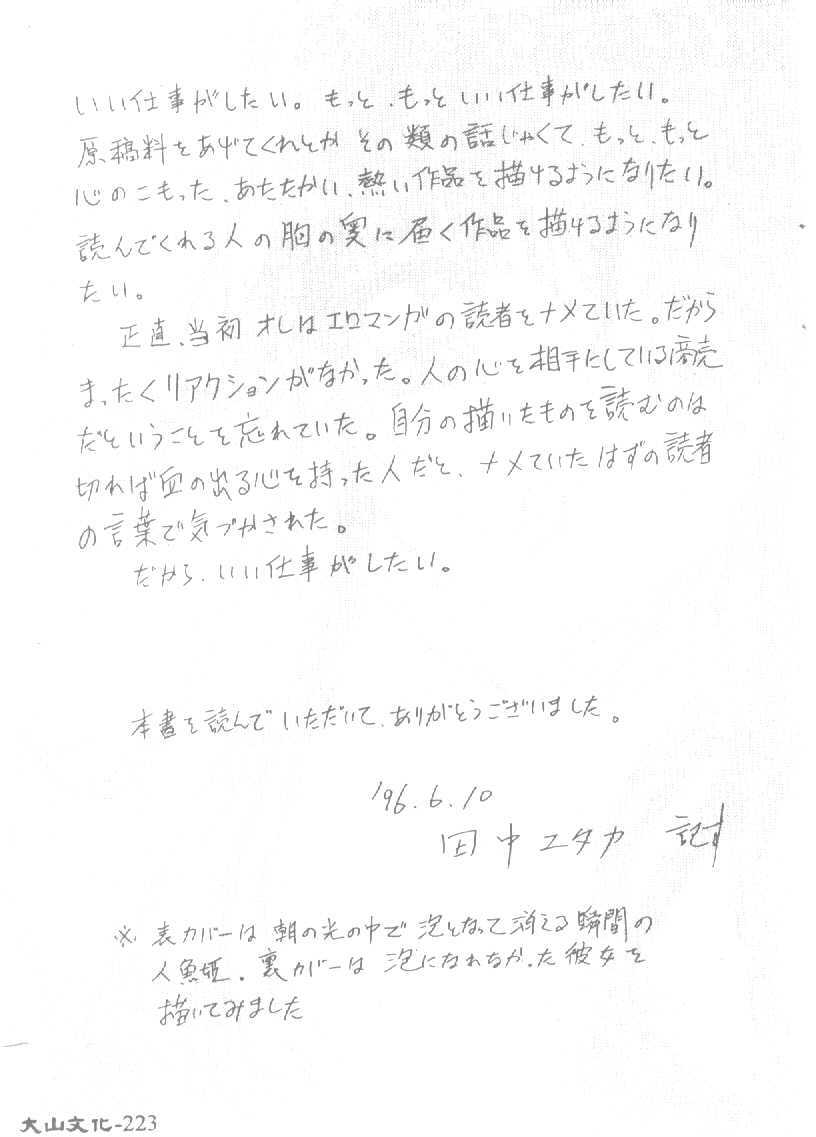 いい仕事がしたい。もっと、もっといい仕事がしたい。
原稿料をあげてくれとか その類の話じゃくて、もっと、もっと
心のこもった、あたたかい、熱い作品を描けるようになりたい。
読んでくれる人の胸の奥に届く作品を描けるようになり
たい。
正直、当初 オレはエロマンガの読者をナメていた。だから
まったくリアクションがなかった。人の心を相手にしている商売
だということを忘れていた。自分の描いたものを読むのは
切れば血の出る心を持った人だと、ナメていたはずの読者
の言葉で気づかされた。
だから、いい仕事がしたい。
本書を読んでいただいて、ありがとうございました。
'96.6.10
田中ユタカ 記す
※ 表カバーは 朝の光の中で 泡となって消える瞬間の
人魚姫。裏カバーは 泡になれなかった彼女を
描いてみました
大山文化-223